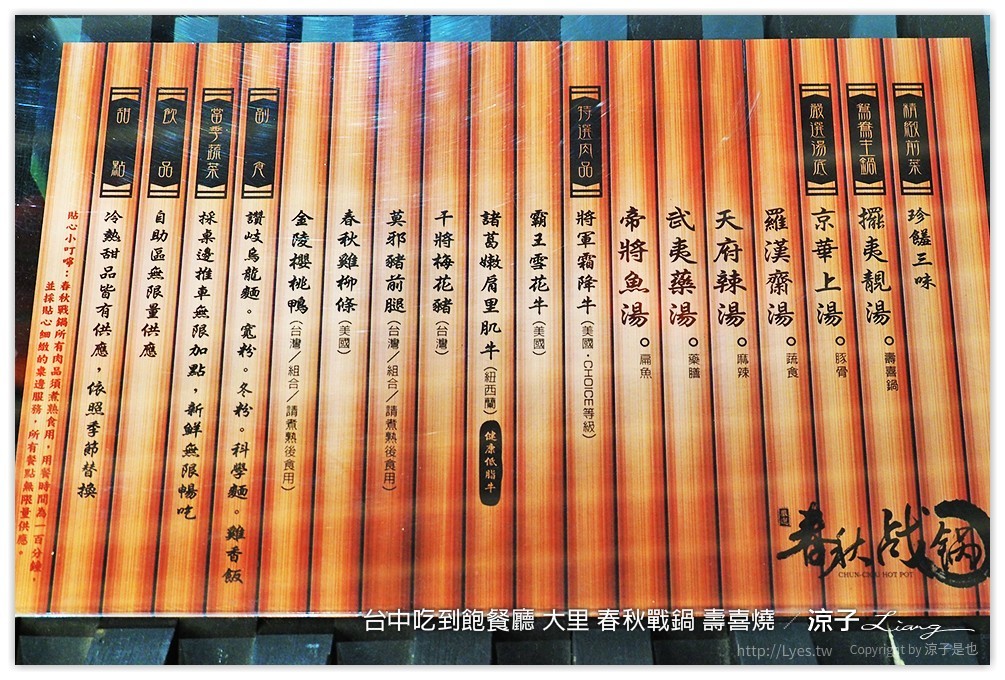 精緻前菜
珍饈三味
鴛鴦主鍋
擺夷靚湯○壽喜鍋
嚴選湯底
京華上湯○豚骨
羅漢齋湯○蔬食
天府辣湯○麻辣
武夷藥湯○藥膳
帝將魚湯○扁魚
特選肉品
將軍霜降牛(美國・CHOICE等級)
霸王雪花牛(美國)
諸葛嫩肩里肌牛(紐西蘭)健康低脂牛
干將梅花豬(台灣)
莫邪豬前腿(台灣/組合/請煮熟後食用)
春秋雞柳條(美國)
金陵櫻桃鴨(台灣/組合/請煮熟後食用)
副食
讚岐烏龍麵。寬粉。冬粉。科學麵。雞香飯
當季蔬菜
採桌邊推車無限加點,新鮮無限暢吃
飲品
自助區無限量供應
甜點
冷熱甜品皆有供應,依照季節替換
貼心小叮嚀:春秋戰鍋所有肉品須煮熟食用,用餐時間為一百分鐘,
並採貼心細緻的桌邊服務,所有餐點無限量供應。
春秋戰鍋
CHUN-CHIU HOT POT
台中吃到飽餐廳 大里 春秋戰鍋 壽喜燒 / 涼子 Liang
http://Lyes.tw Copyright by 涼子是也